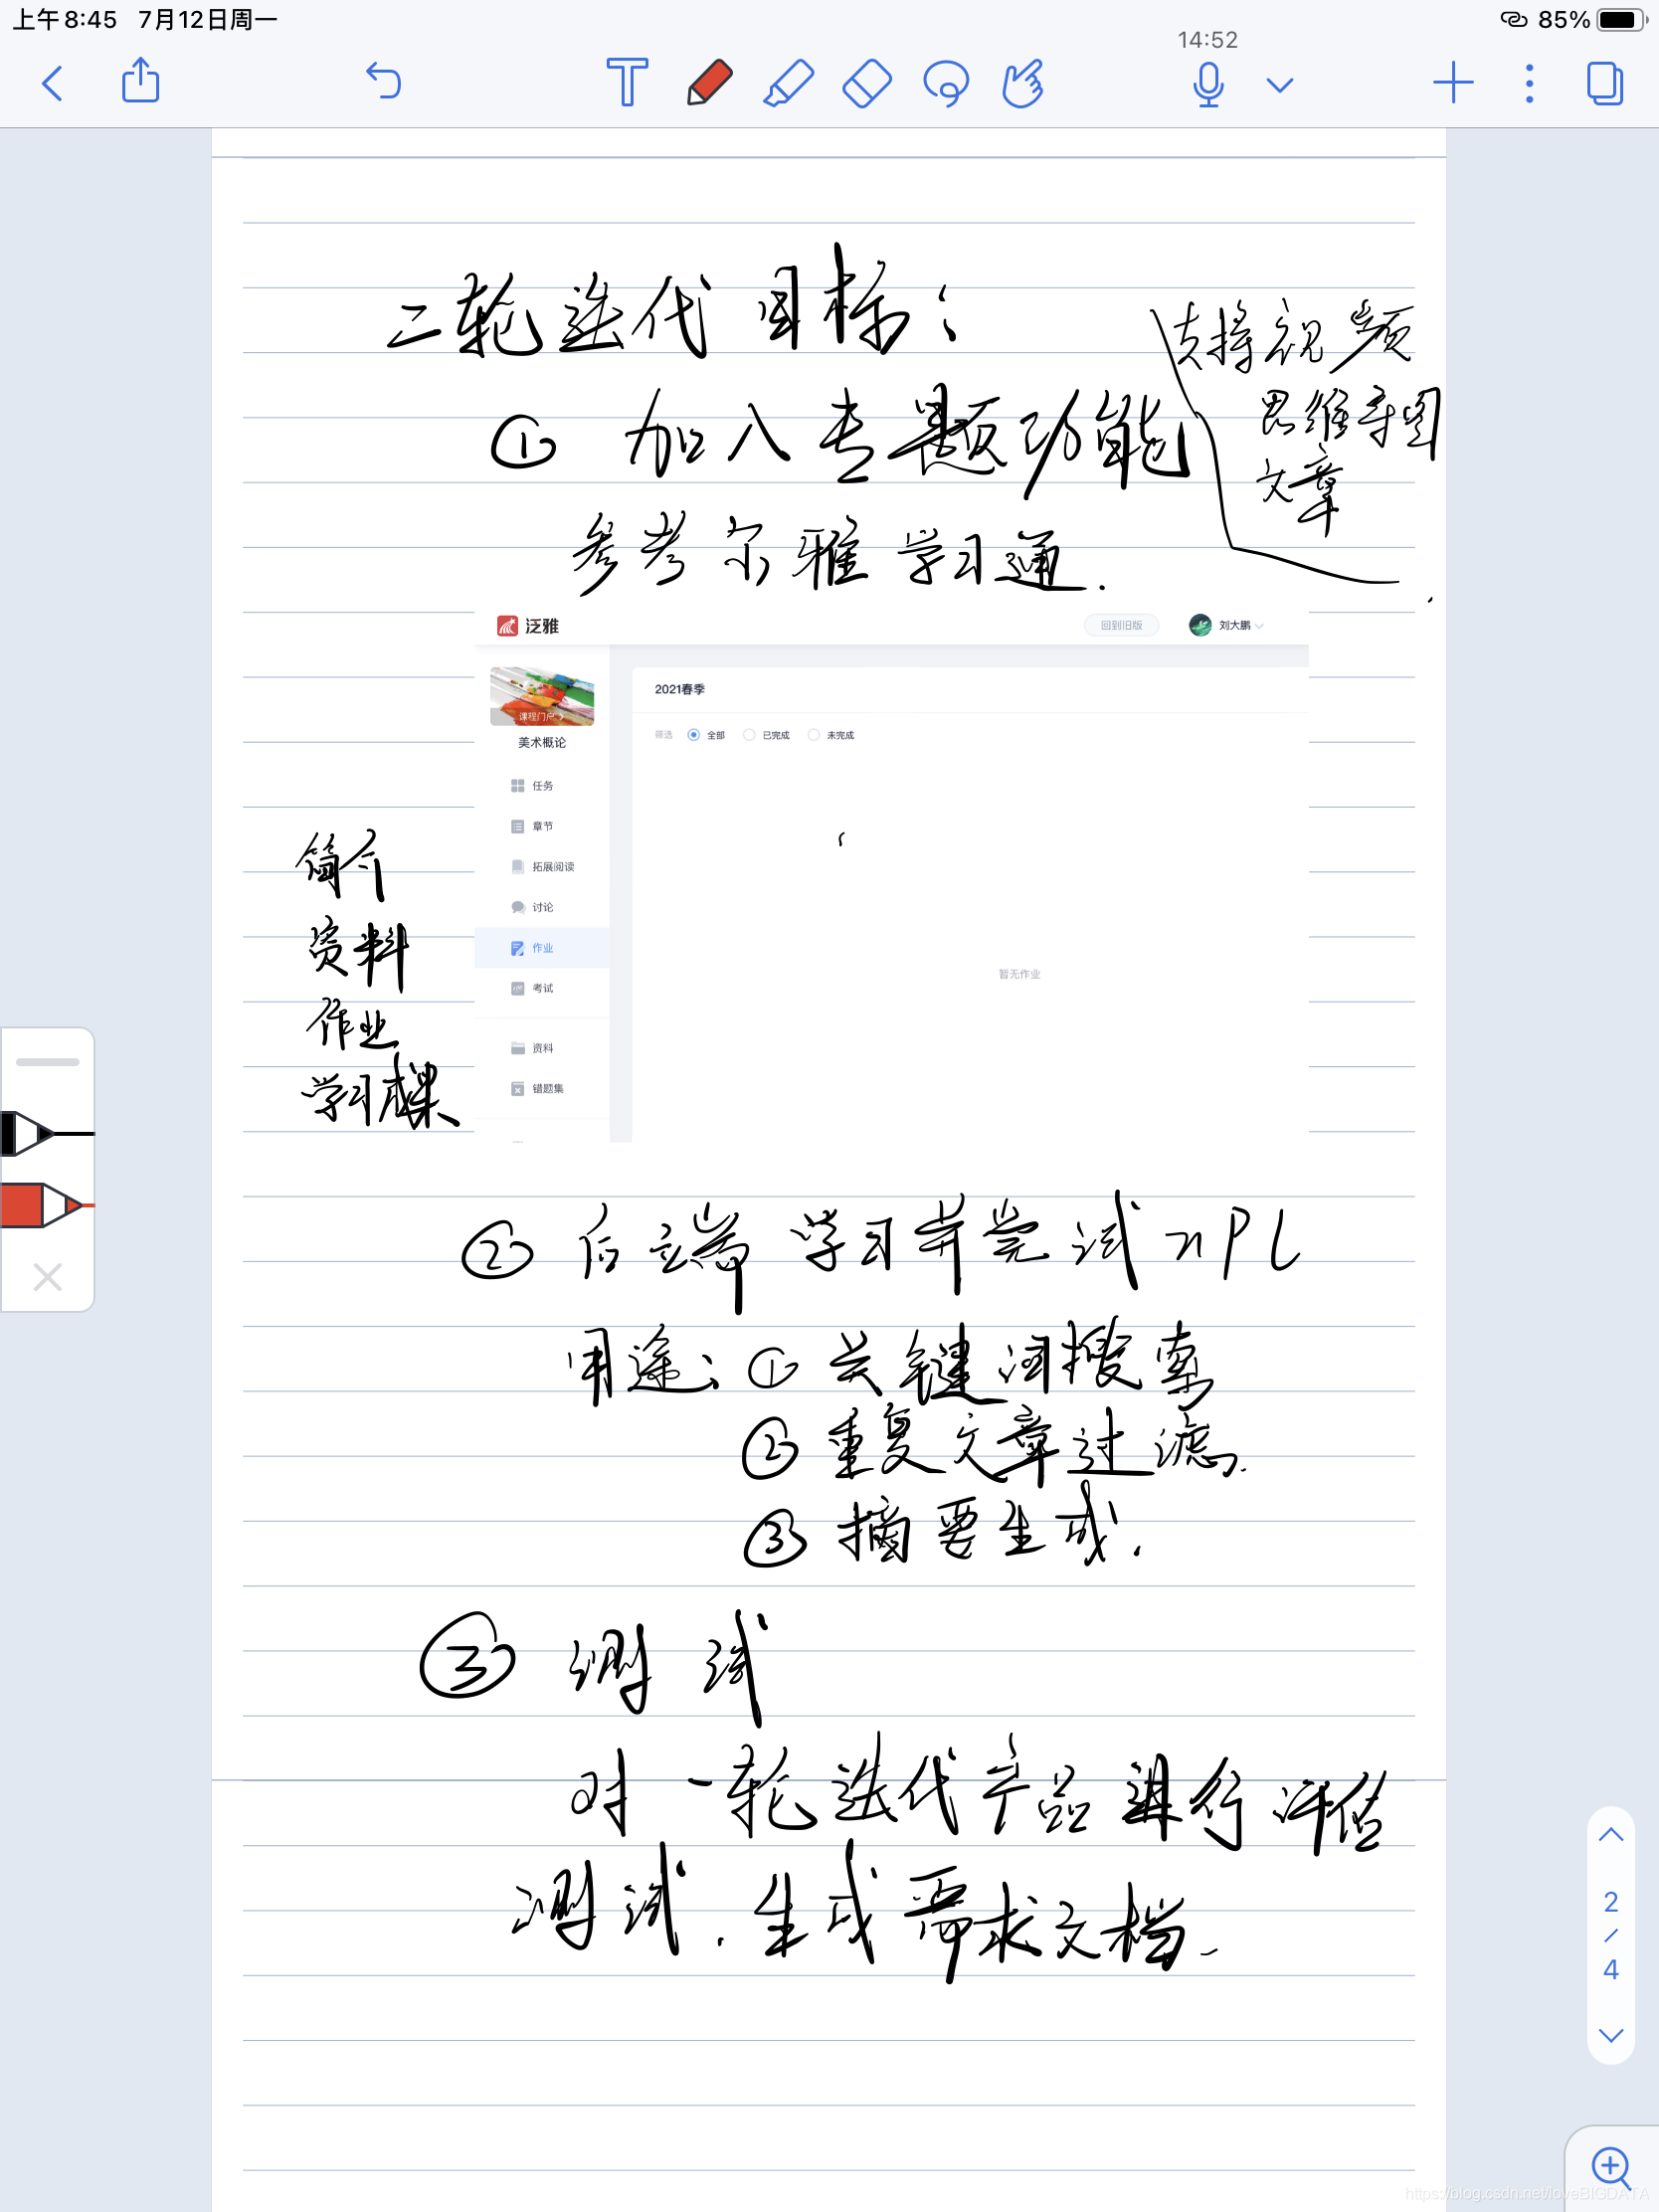 上午8:45 7月12日周一
85%
14:52
二轮迭代目标：
支持视频
思维导图
文章
① 加入专题功能
参考尔雅学习通.
泛雅
回到旧版
刘大鹏
课程门户
美术概论
2021春季
筛选 全部 已完成 未完成
任务
章节
拓展阅读
讨论
作业
考试
资料
错题集
暂无作业
简介
资料
作业
学习成果
② 后端 学习并尝试 nPL
用途：① 关键词搜索
② 重复文章过滤.
③ 摘要生成.
③ 测试
对一轮迭代产品进行评估
测试.生成需求文档.
2
/
4
https://blog.csdn.net/loveBIGDATA